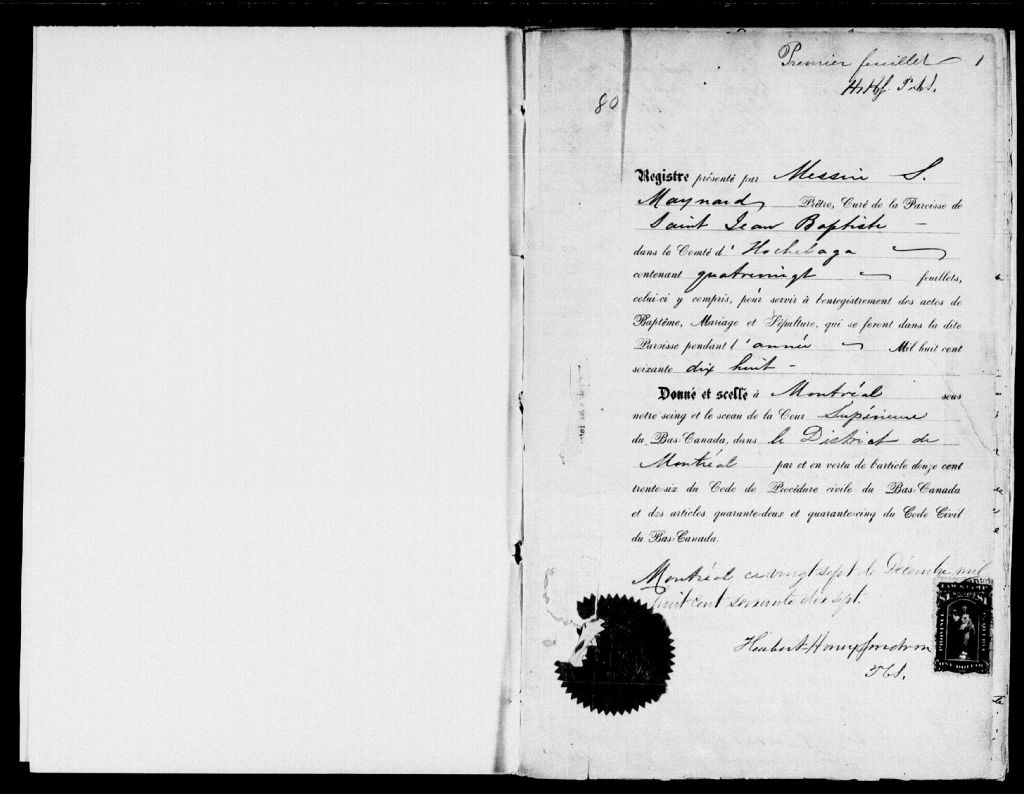 Premier feuillet 1
80
Registre présenté par Messire S.
Maynard Prêtre, Curé de la Paroisse de
Saint Jean Baptiste
dans le Comté d' Hochelaga
contenant quatrevingt feuillets,
celui-ci y compris, pour servir à l'enregistrement des actes de
Baptême, Mariage et Sépulture, qui se feront dans la dite
Paroisse pendant l'année Mil huit cent
soixante dix huit -
Donné et scellé à Montréal sous
notre seing et le sceau de la Cour Supérieure
du Bas-Canada, dans le District de
Montréal par et en vertu de l'article douze cent
trente-six du Code de Procédure civile du Bas-Canada
et des articles quarante-deux et quarante-cinq du Code Civil
du Bas-Canada.
Montréal ce vingt sept de Décembre mil
huit cent soixante dix sept.
LAW STAMP
PROVINCE QUEBEC
ONE DOLLAR